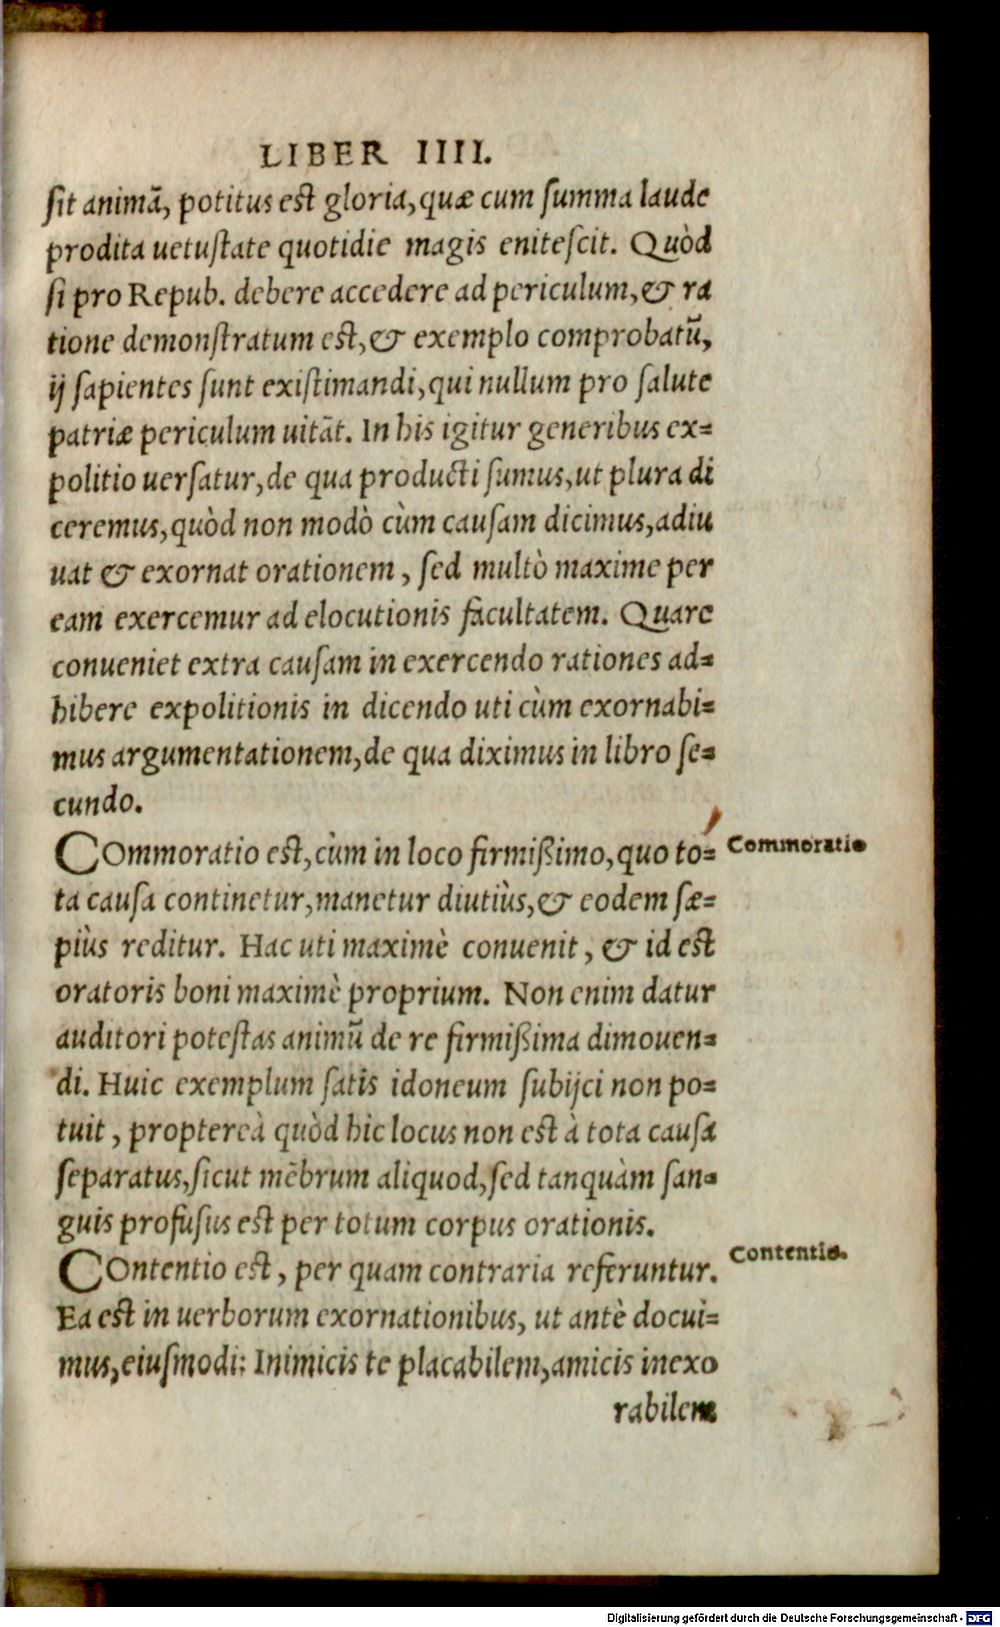 LIBER IIII.
sit animā, potitus est gloria, quæ cum summa laude
prodita uetustate quotidie magis enitescit. Quòd
si pro Repub. debere accedere ad periculum, & ra
tione demonstratum est, & exemplo comprobatū,
ij sapientes sunt existimandi, qui nullum pro salute
patriæ periculum uitāt. In his igitur generibus ex=
politio uersatur, de qua producti sumus, ut plura di
ceremus, quòd non modò cùm causam dicimus, adiu
uat & exornat orationem, sed multò maxime per
eam exercemur ad elocutionis facultatem. Quare
conueniet extra causam in exercendo rationes ad=
hibere expolitionis in dicendo uti cùm exornabi=
mus argumentationem, de qua diximus in libro se=
cundo.
COmmoratio est, cùm in loco firmißimo, quo to= Commoratio
ta causa continetur, manetur diutiùs, & eodem sæ=
piùs reditur. Hac uti maximè conuenit, & id est
oratoris boni maximè proprium. Non enim datur
auditori potestas animū de re firmißima dimouen=
di. Huic exemplum satis idoneum subijci non po=
tuit, proptereà quòd hic locus non est à tota causa
separatus, sicut mēbrum aliquod, sed tanquàm san=
guis profusus est per totum corpus orationis.
COntentio est, per quam contraria referuntur. Contentio.
Ea est in uerborum exornationibus, ut antè docui=
mus, eiusmodi: Inimicis te placabilem, amicis inexo
rabilem
Digitalisierung gefördert durch die Deutsche Forschungsgemeinschaft - DFG